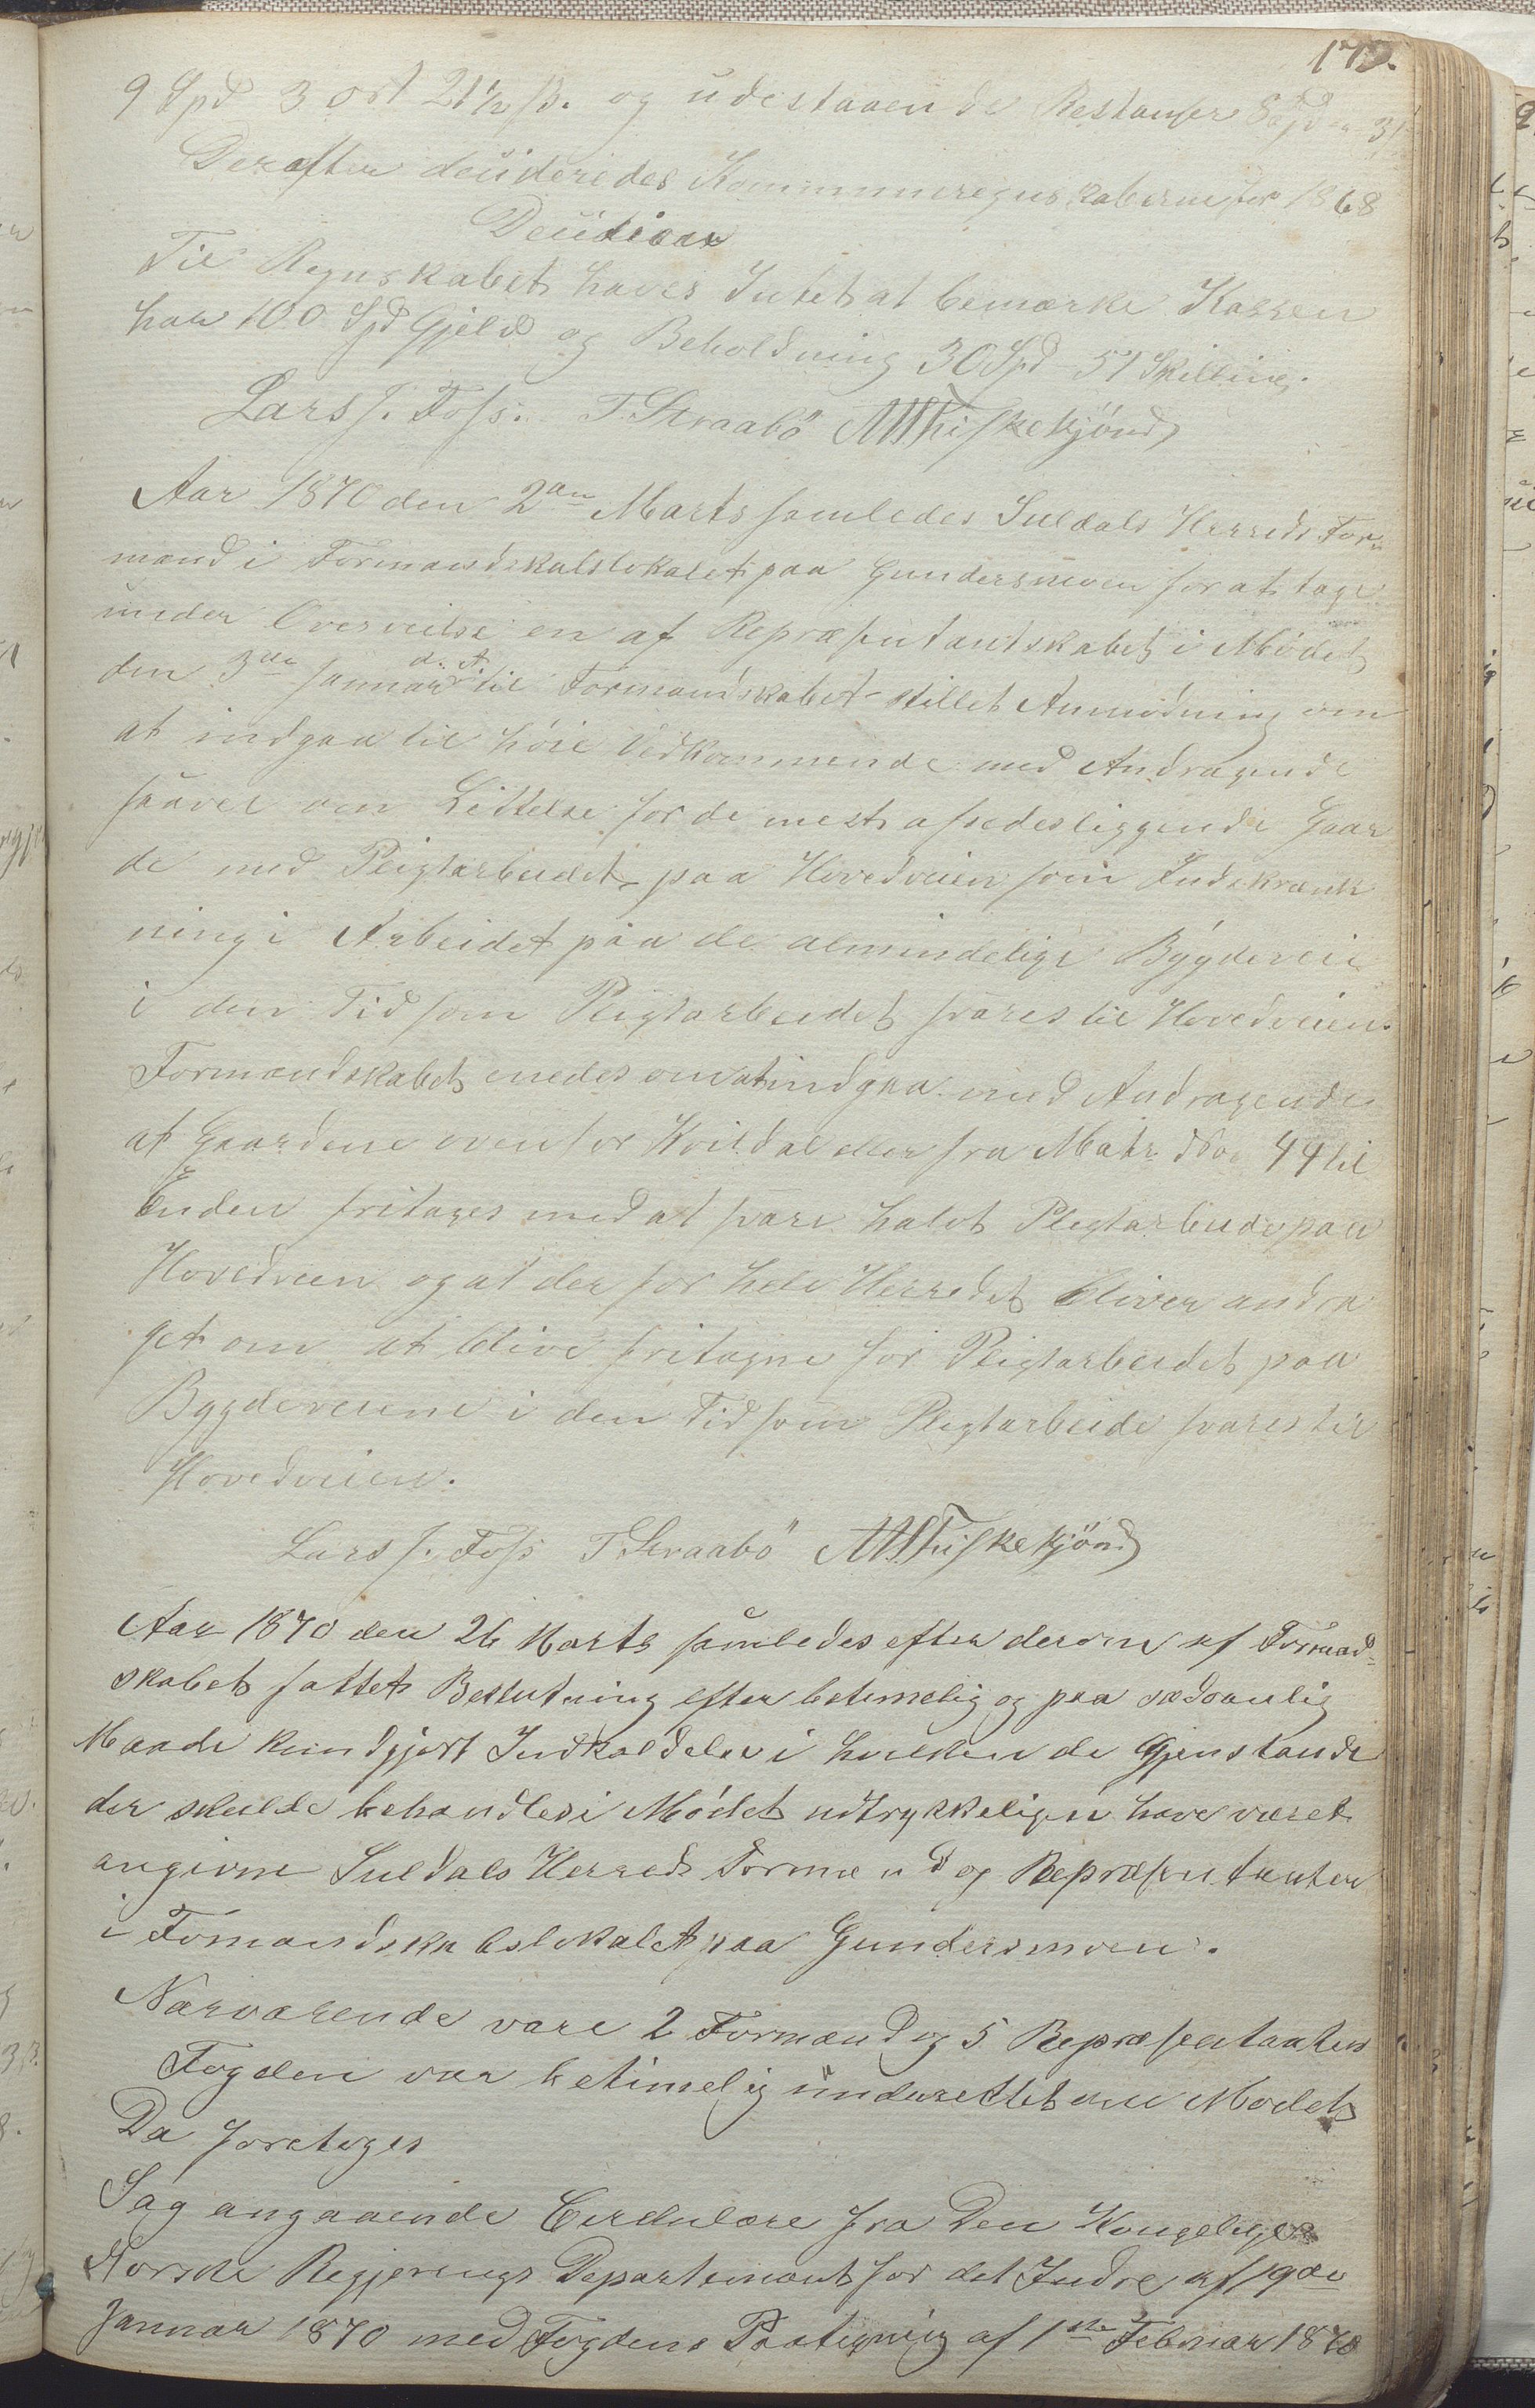 179.
9 Spd 3 Ort 21 1/2 ß. og udestaaende Restanser
Derefter deciderides Kommuneregnskaberne for 1868
Decision
Til Regnskabet haves Intet at bemærke Kassen
har 100 Spd Gjeld og Beholdning 30 Spd 51 Skilling.
Lars J. Foss. T Straabö Fiskekjönd
Aar 1870 den 2den Marts samledes Suldals Herreds For-
mænd i Formandskabslokalet paa Gundersmoen for at tage
under Overveielse en af Repræsentantskabet i Mødet
den 3die Januar d. A. til Formandskabet stillet Anmodning om
at indgaa til høie Vedkommende med Andragende
saavel om Lettelse for de mest afsidesliggende Gaar
de med Pligtarbeidet paa Hovedveien som Indskrænk
ning i Arbeidet paa de almindelige Bygdeveie
i den Tid som Pligtarbeidet svares til Hovedveien.
Formandskabet enedes om at indgaa med Andragende
at Gaardene ovenfor Kvildal eller fra Matr. No. 44 til
Enden fritages med at svare halvt Pligtarbeide paa
Hovedveien og at der for hele Herredet bliver andra
get om at blive fritagne for Pligtarbeidet paa
Bygdeveiene i den Tid som Pligtarbeide svares til
Hovedveien.
Lars J. Foss T Straabö Fiskekjönd
Aar 1870 den 26 Marts samledes efter derom af Formand-
skabet fattet Beslutning efter betimelig og paa sædvanlig
Maade kundgjort Indkaldelse i hvilken de Gjenstande
der skulde behandles i Mødet udtrykkeligen have været
angivne Suldals Herreds Formænd og Repræsentanter
i Fomandskabslokalet paa Gundersmoen.
Nærværende vare 2 Formænd og 5 Repræsentanter
Fogden var betimelig underrettet om Modet
Da foretoges
Sag angaaende Cirkulære fra Den Kongelige
Norske Regjerings Departement for det Indre af 19de
Januar 1870 med Fogdens Paategning af 1ste Februar 1870